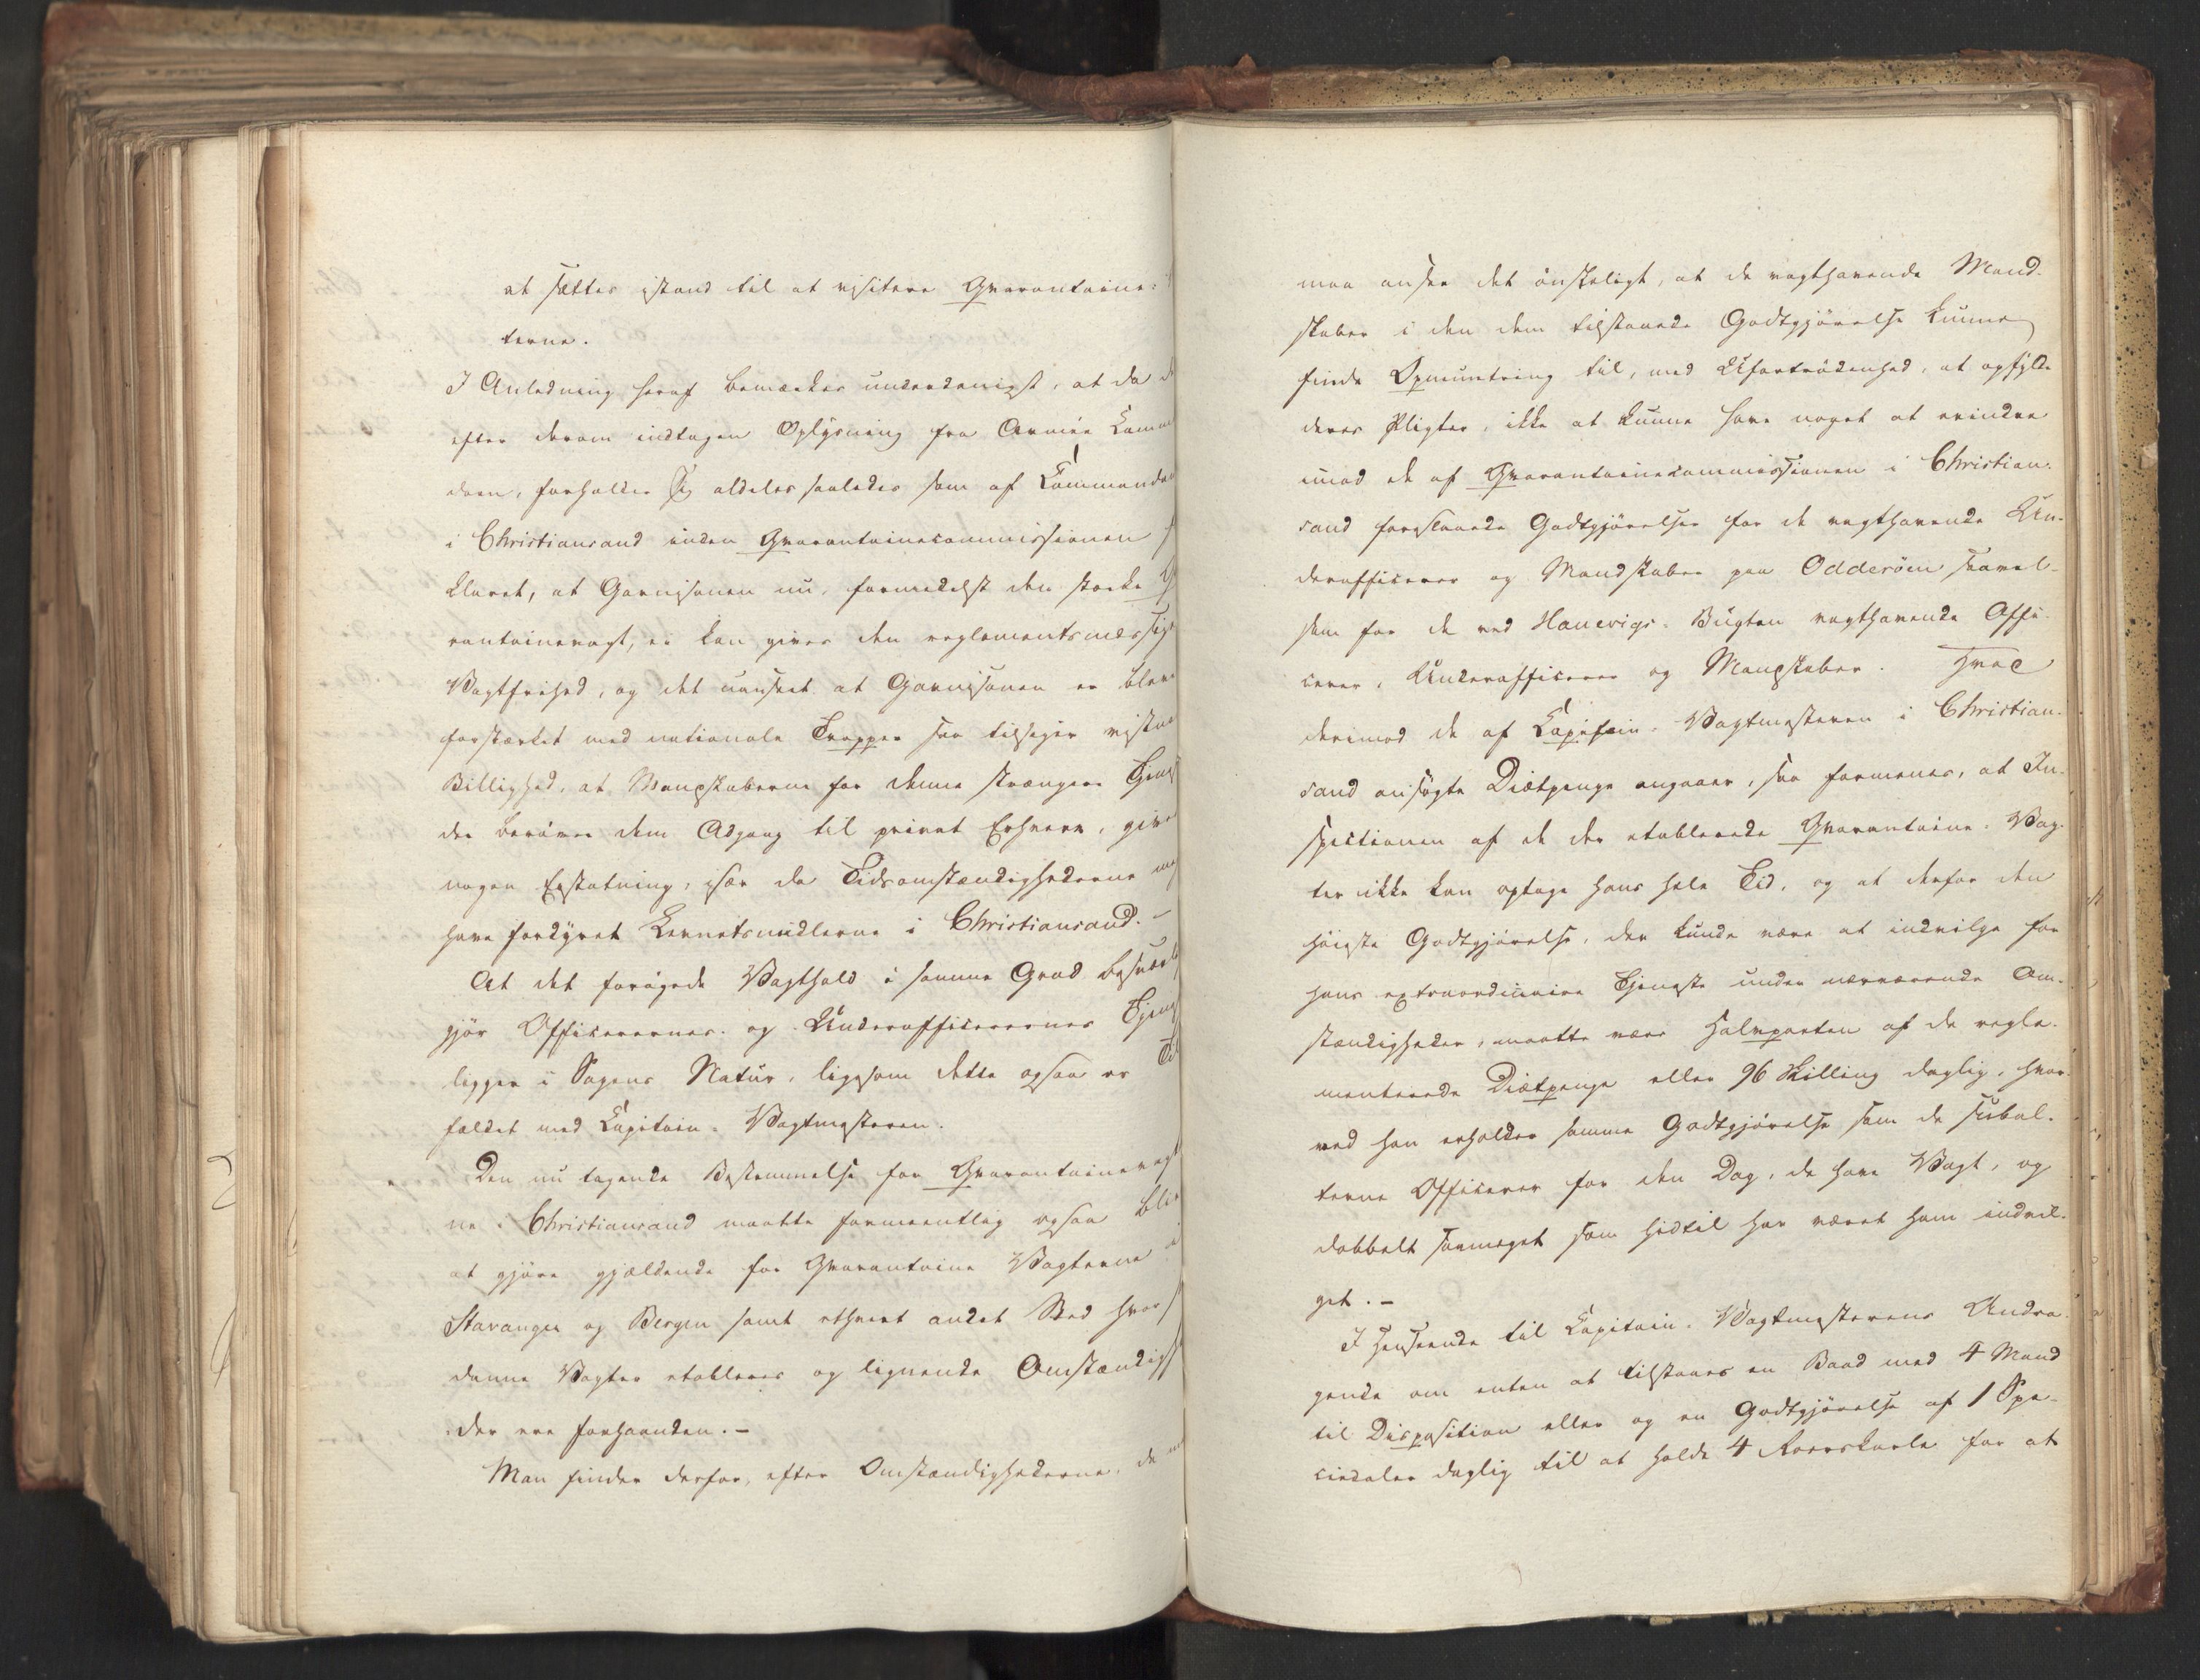 at sættes istand til at visitere Qvarantaine-
terne.
I Anledning heraf bemærkes underdanigst, at da
efter derom indtagen Oplysning fra Armée Comm
doen, forholder sig aldeles saaledes som af Commandan
i Christiansand inden Qvarantainecommissionen
klaret, at Garnisonen nu, formedelst den stærke
rantainevagt, ei kan gives den reglementsmæssige
Vagtfrihed, og det uanseet at Garnisonen er bleve
forstærket med nationale Tropper saa tilsiger vistno
Billighed, at Mandskaberne for denne strængere Tjenes
der berøver dem Adgang til privat Erhverv, give
nogen Erstatning, især da Tidsomstændighederne
have fordyret Levnetsmidlerne i Christiansand.-
At det forøgede Vagthold i samme Grad besværli
gjør Officerernes og Underofficerernes Tjenes
ligger i Sagens Natur, ligesom dette ogsaa er Til
fældet med Capitain-Vagtmesteren.
Den nu tagende Bestemmelse for Qvarantainevagt
ne i Christiansand maatte formeentlig ogsaa bliv
at gjøre gjældende for Qvarantaine Vagterne i
Stavanger og Bergen samt ethvert andet Sted hvor s
danne Vagter etableres og lignende Omstændigh
der ere forhaanden.-
Man finder derfor, efter Omstændighederne, de
maa ansee det ønskeligt, at de vagthavende Mand-
skaber i den dem tilstaaede Godtgjørelse kunne
finde Opmuntring til, med Ufortrødenhed, at opfylde
deres Pligter, ikke at kunne have noget at erindre
imod de af Qvarantainecommissionen i Christian-
sand foreslaaede Godtgjørelser for de vagthavende Un-
derofficerer og Mandskaber paa Odderöen saavel
som for de ved Hanevigs-Bugten vagthavende Offi-
cerer, Underofficerer og Mandskaber. Hvad
derimod de af Capitain-Vagtmesteren i Christian-
sand ansøgte Diætpenge angaaer, saa formenes, at In-
spectionen af de der etablerede Qvarantaine-Vag-
ter ikke kan optage hans hele Tid, og at derfor den
høieste Godtgjørelse, der kunde være at indvilge for
hans extraordinaire Tjeneste under nærværende Om-
stændigheder, maatte være Halvparten af de regle-
menterede Diætpenge eller 96 Skilling daglig, hvor-
ved han erholder samme Godtgjørelse som de subal-
terne Officerer for den Dag, de have Vagt, og
dobbelt saameget som hidtil har været ham indvil-
get.-
I Henseende til Capitain-Vagtmesterens Andra-
gende om enten at tilstaaes en Baad med 4 Mand
til Disposition eller og en Godtgjørelse af 1 Spe-
ciedaler daglig til at holde 4 Roerskarle for at